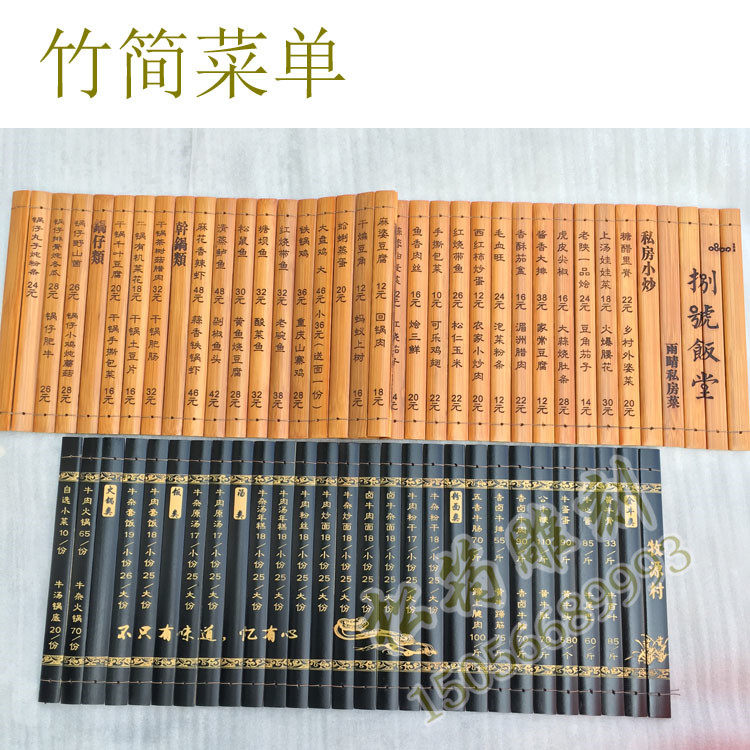 竹简菜单
0800
捌號飯堂
雨晴私房菜
私房小炒
糖醋里脊 22元 乡村外婆菜 20元
上汤娃娃菜 18元 火爆腰花 30元
老陕一品烩 24元 豆角茄子 14元
虎皮尖椒 16元 大蒜烧肚条 28元
酱香大排 38元 家常豆腐 12元
香酥茄盒 16元 湄洲腊肉 22元
毛血旺 24元 泡菜粉条 12元
西红柿炒蛋 12元 农家小炒肉 20元
红烧带鱼 26元 松仁玉米 22元
手撕包菜 10元 可乐鸡翅 22元
鱼香肉丝 16元 烩三鲜 12元
麻婆豆腐 12元 回锅肉 18元
干煸豆角 12元 蚂蚁上树 16元
蛤蜊蒸蛋 20元
大盘鸡 大 46元 小36元(送面一份)
铁锅鸡 36元 重庆山寨鸡 28元
红烧带鱼 32元 老碗鱼
塘坝鱼 32元 酸菜鱼 28元
松鼠鱼 30元 黄鱼烧豆腐 28元
清蒸鲈鱼 48元 剁椒鱼头 42元
麻花香辣虾 48元 蒜香铁锅虾 48元
幹鍋類
干锅茶树菇腊肉 32元 干锅肥肠 32元
干锅有机菜花 18元 干锅土豆片 16元
干锅千叶豆腐 20元 干锅手撕包菜 16元
鍋仔類
锅仔野山菌 26元 锅仔小鸡炖蘑菇 28元
锅仔排骨炖冬瓜 28元 锅仔肥牛 26元
锅仔丸子炖粉条 24元
牧源村
五香牛肠 70/斤
牛杂干拌 18
牛肉干拌 17
卤牛杂面 18/小份 25/大份
卤牛肉面 18/小份 25/大份
牛杂炒面 18/小份 25/大份
牛肉炒面 18/小份 25/大份
牛肉粉丝 17/小份 25/大份
牛杂汤 18/小份 25/大份
牛肉汤年糕 18/小份 25/大份
牛杂汤年糕 18/小份 25/大份
汤类
牛肉原汤 17/小份 25/大份
牛杂原汤 17/小份 25/大份
饭类
牛肉套饭 18/小份 25/大份
牛杂套饭 19/小份 26/大份
火锅类
牛肉火锅 65/份 牛杂火锅 70/份
自选小菜 10/份 牛汤锅底 20/份
不只有味道，忆有心
松筠雕刻
15056689993